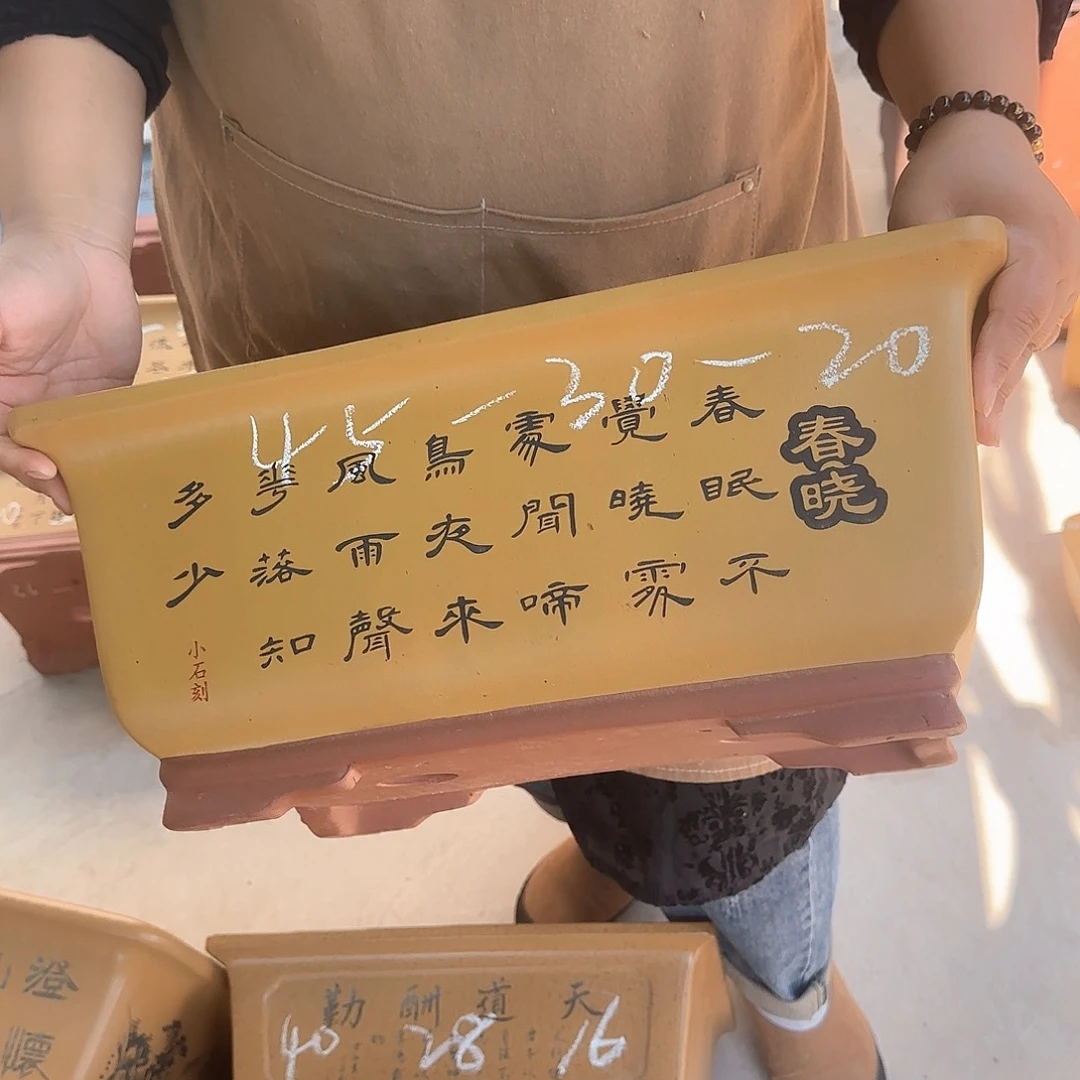 45-30-20
春晓
春眠不
覺曉處
處聞啼
鳥夜來
風雨聲
華落知
多少
小石刻
天道酬勤
40 28 16
澄
懷